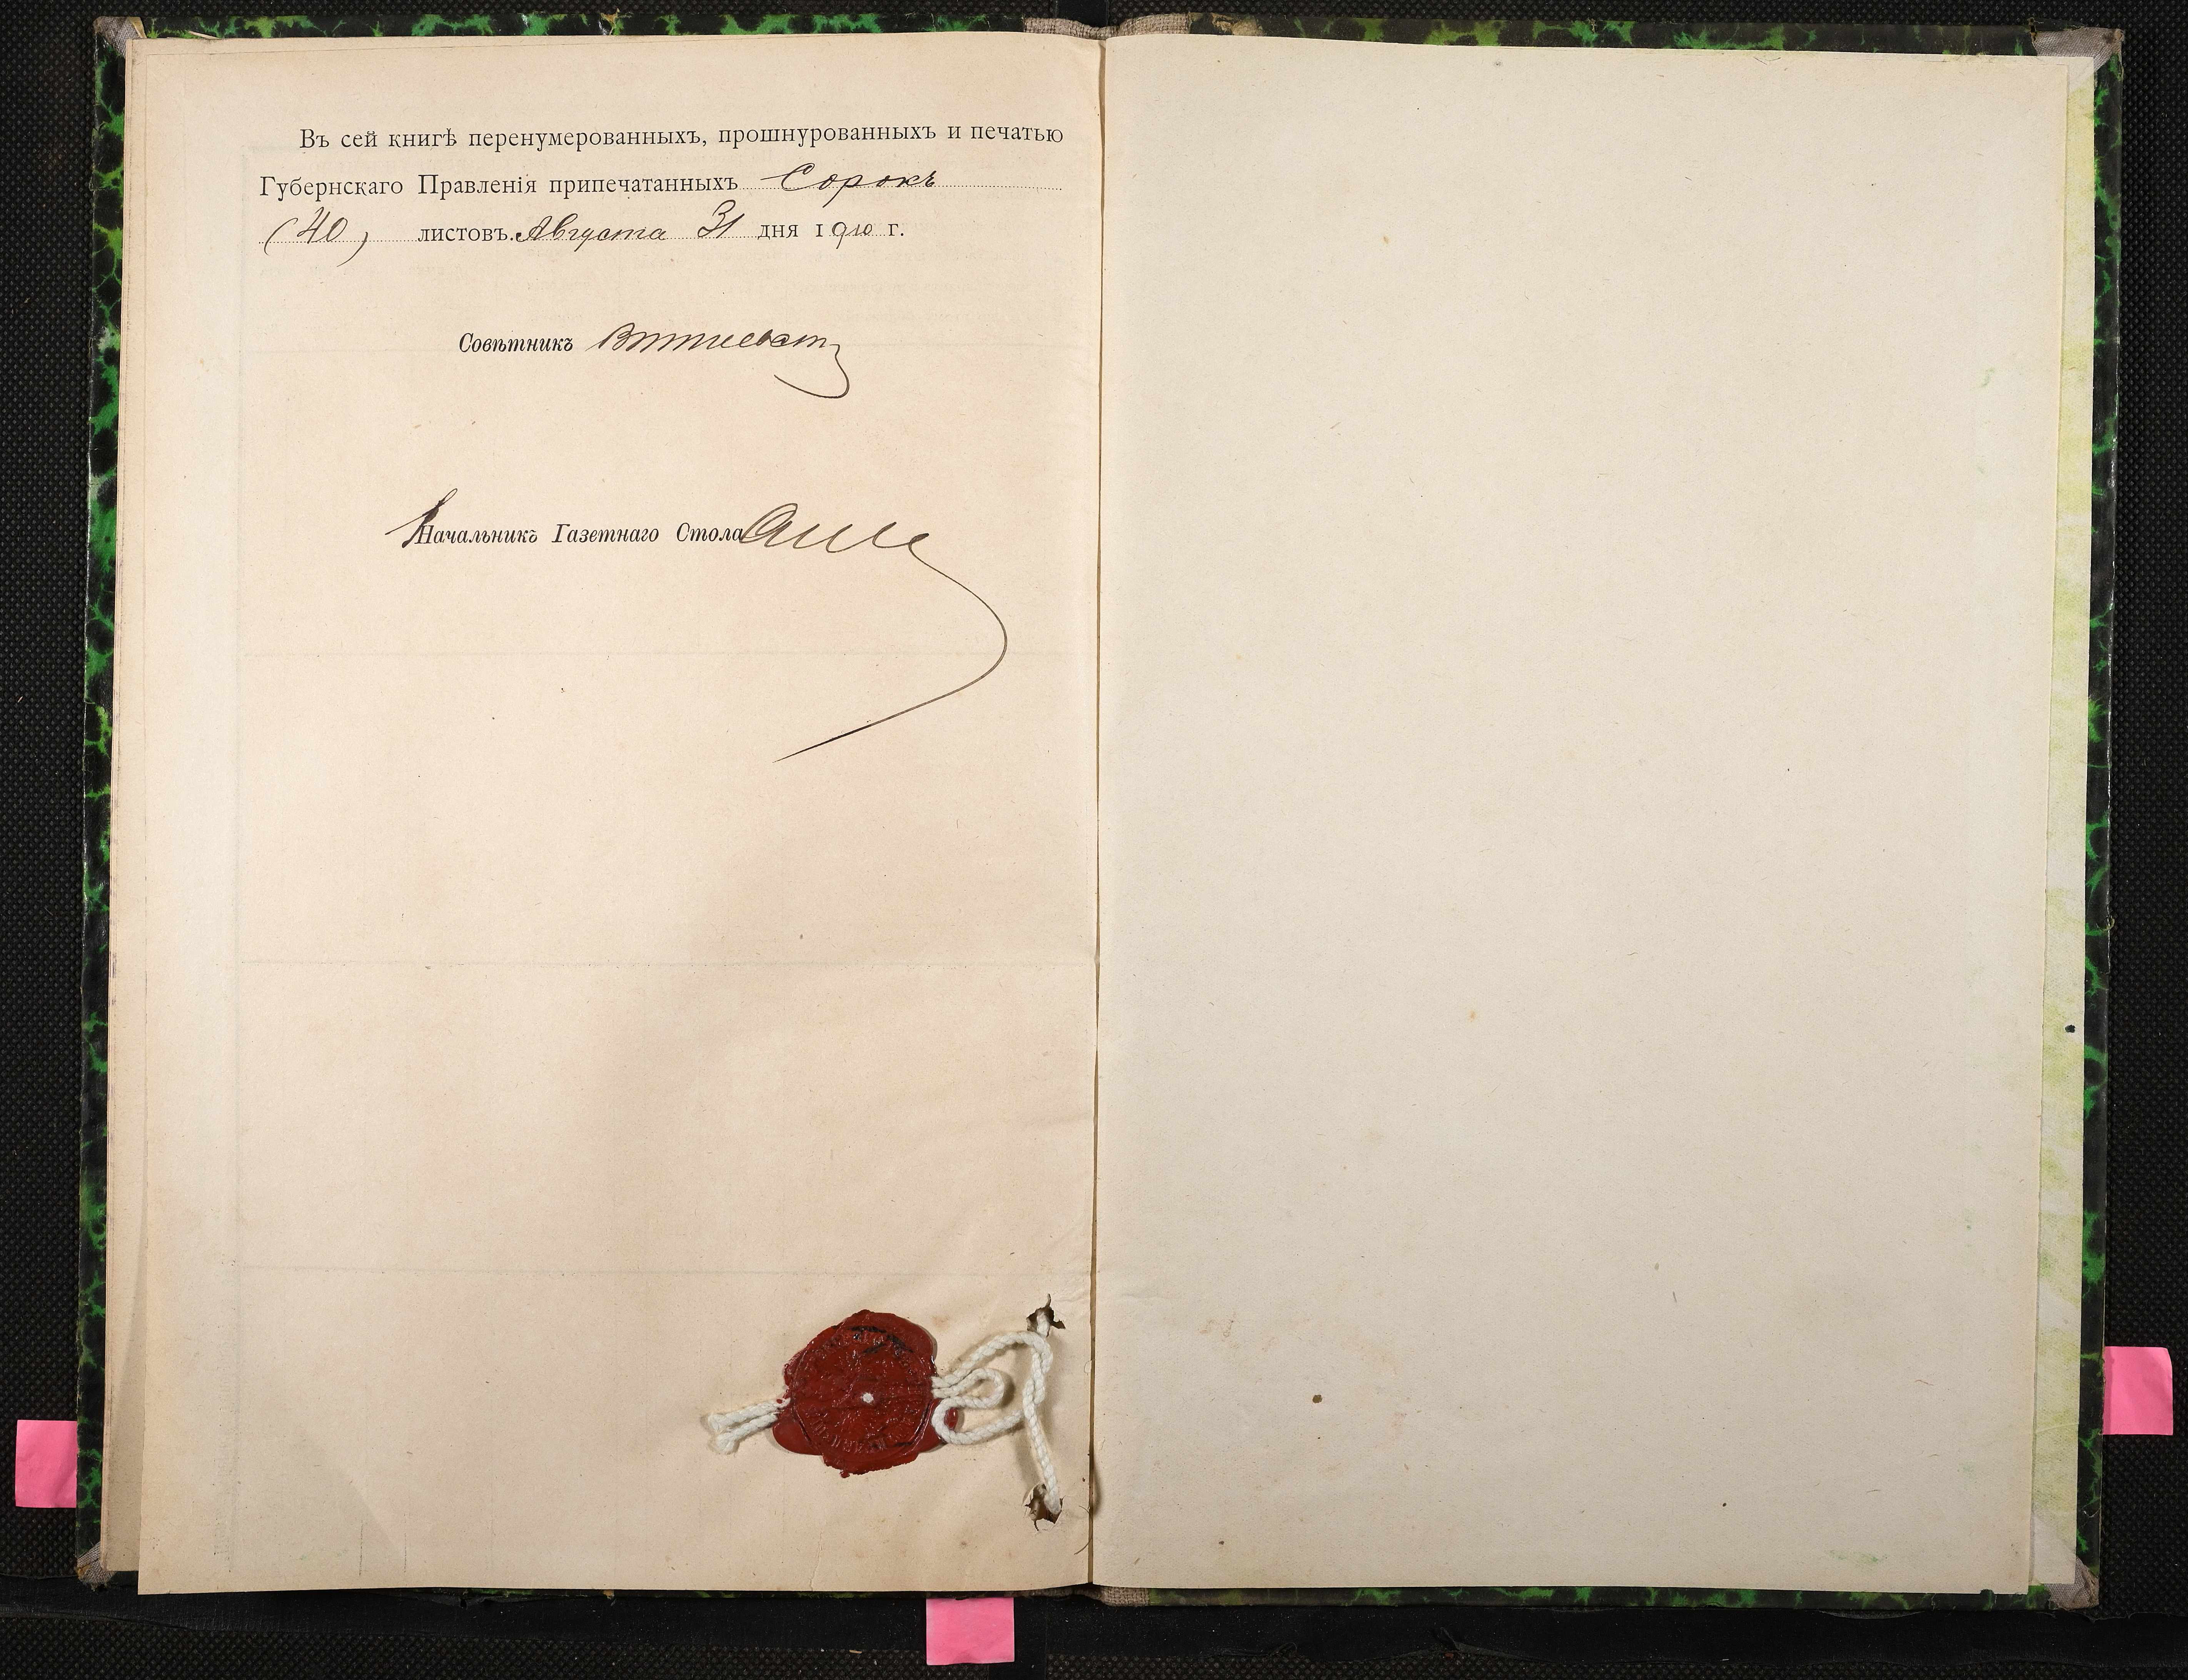 Въ сей книгѣ перенумерованныхъ, прошнурованныхъ и печатью
Губернскаго Правленія припечатанныхъ Сорокъ
(40) листовъ. Августа 31 дня 1910 г.
Совѣтникъ
Начальникъ Газетнаго Стола